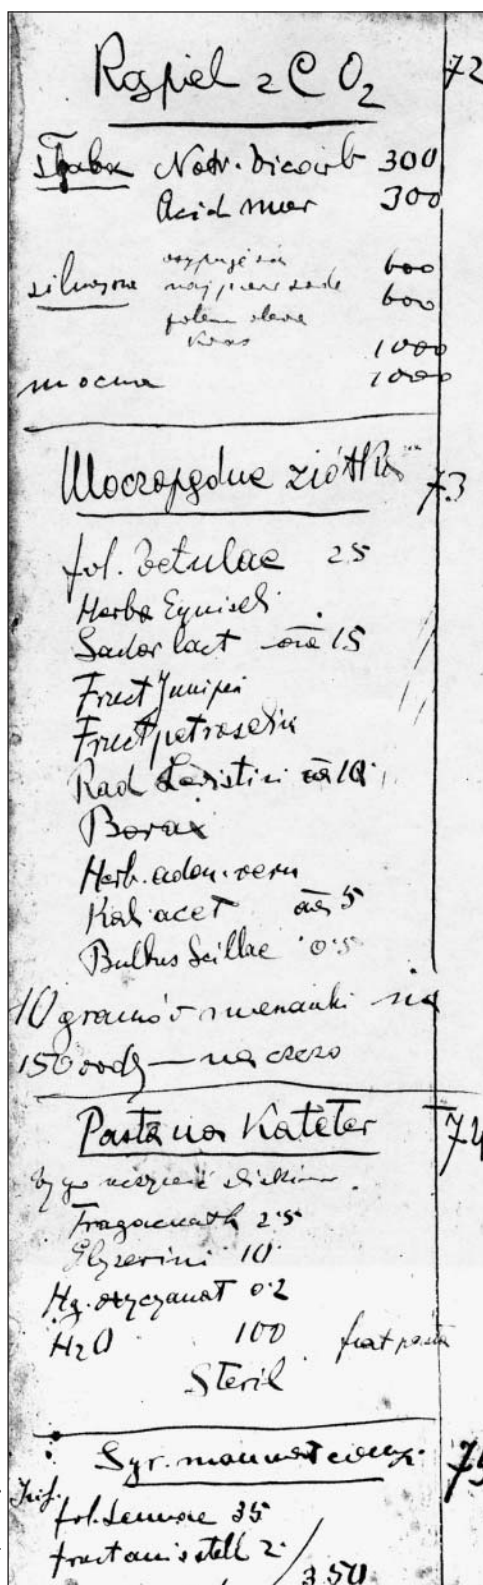 Kąpiel z CO2 72
słaba Natr. bicarb 300
Acid mur 300
wsypuje się 600
silniejsza najpierw sodę 600
potem
kwas 1000
mocna 1000
Moczopędne ziółka 73
fol. betulae 25
Herba Equiseti
Succhar lact āā 15
Fruct Juniperi
Fruct petroselin
Rad Levistici āā 10
Borax
Herb. adon. vern
Kali acet āā 5
Bulbus Scillae 0.5
10 gramów mieszanki na
150 wody — na czczo
Pasta na Kateter 74
by go uczynić śliskim
Tragacanth 2.5
Glyzerini 10
Hg. oxycyanat 0.2
H2O 100 fiat pasta
Steril
Syr. mannat comp. 75
Inf.
fol. Sennae 35
fruct anis stell 2.
350